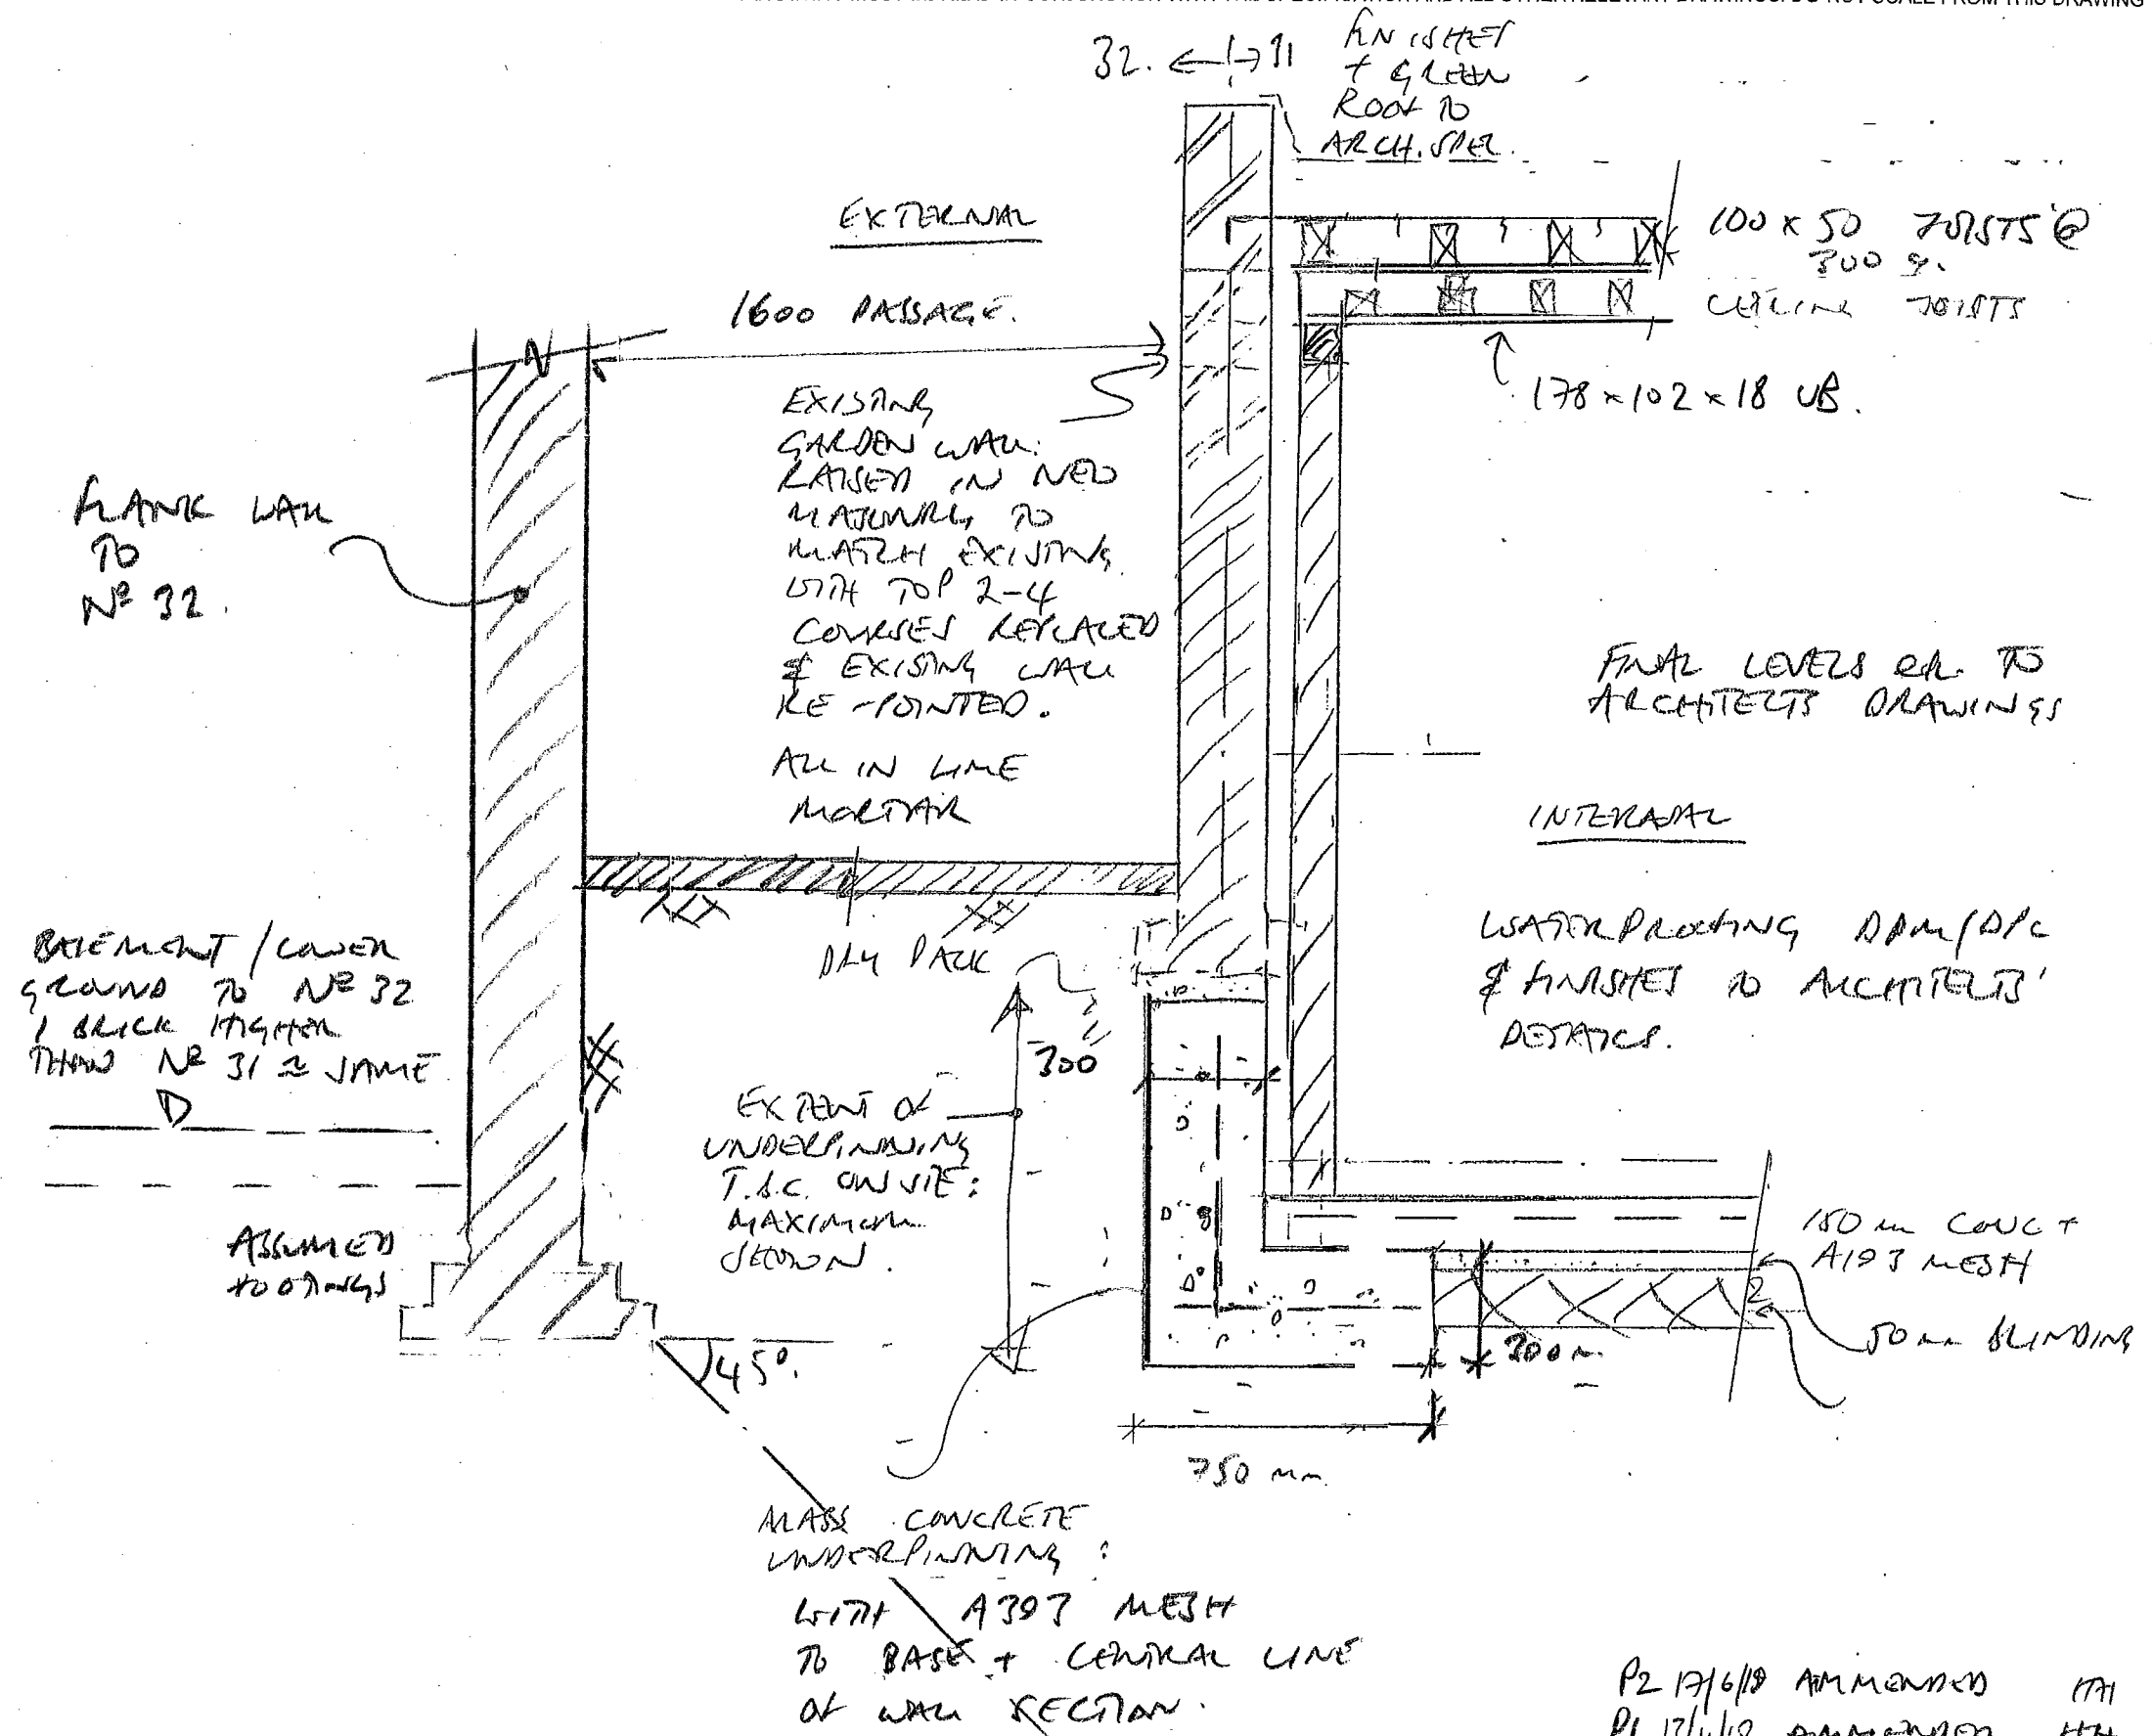 32. 31
FINISHES
+ GREEN
ROOF TO
ARCH. SPEC.
EXTERNAL
100 x 50 JOISTS @
300 %.
CEILING JOISTS
1600 PASSAGE.
178 x 102 x 18 UB.
EXISTING
GARDEN WALL:
RAISED IN NEW
MASONRY TO
MATCH EXISTING
WITH TOP 2-4
COURSES REPLACED
& EXISTING WALL
RE-POINTED.
ALL IN LIME
MORTAR
FLANK WALL
TO
Nº 32.
FINAL LEVELS etc. TO
ARCHITECTS DRAWINGS
INTERNAL
WATERPROOFING DPM/DPC
& FINISHES TO ARCHITECTS'
DETAILS.
BASEMENT / LOWER
GROUND TO Nº 32
1 BRICK HIGHER
THAN Nº 31 ≈ SAME
DRY PACK
300
EXTENT OF
UNDERPINNING
T.B.C. ON SITE:
MAXIMUM
SHOWN.
ASSUMED
FOOTINGS
45°.
150mm CONC +
A193 MESH
50mm BLINDING
300m.
750 mm.
MASS CONCRETE
UNDERPINNING:
WITH A393 MESH
TO BASE + CENTRAL LINE
OF WALL SECTION.
P2 17/6/18 AMMENDED
P1 AMMENDED